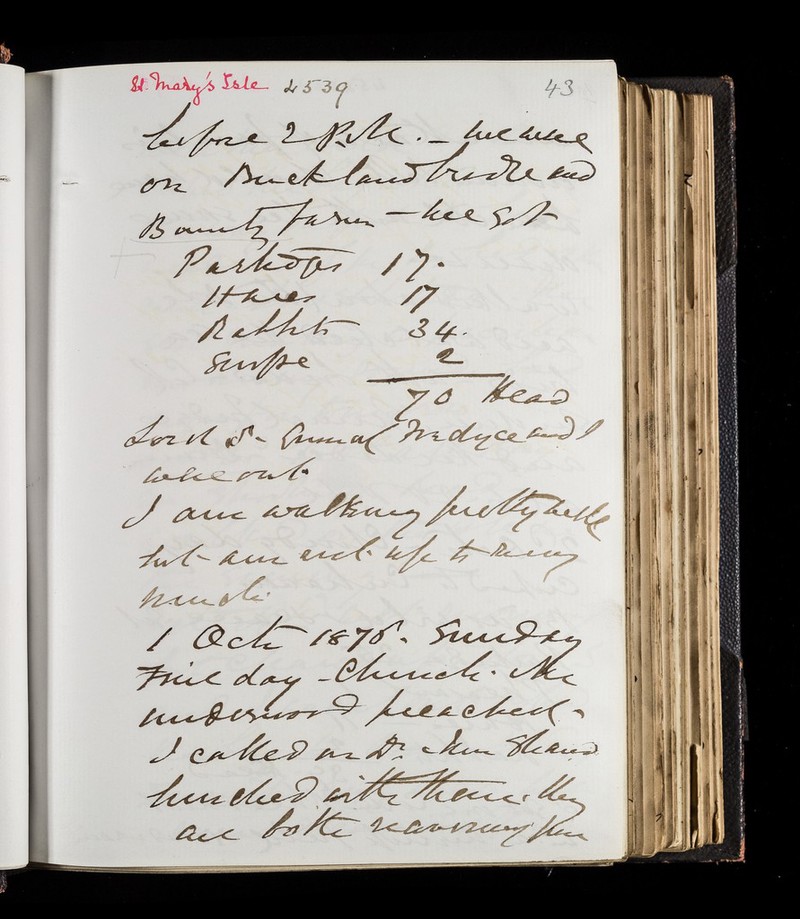 St. Mary's Isle 4539 43
before 2 P.M. – we were
on Buckland bridle and
Bounty farm – we got
17.
Hares 17
Rabbits 34.
Snipe 2
70 Head
Lord S- and I
were out.
I am walking pretty well
but am not up to very
much.
1 Oct 1876. Sunday
Fine day – Church. Mr
Underwood preached –
I called on Dr. Shand
lunched with them. They
are both